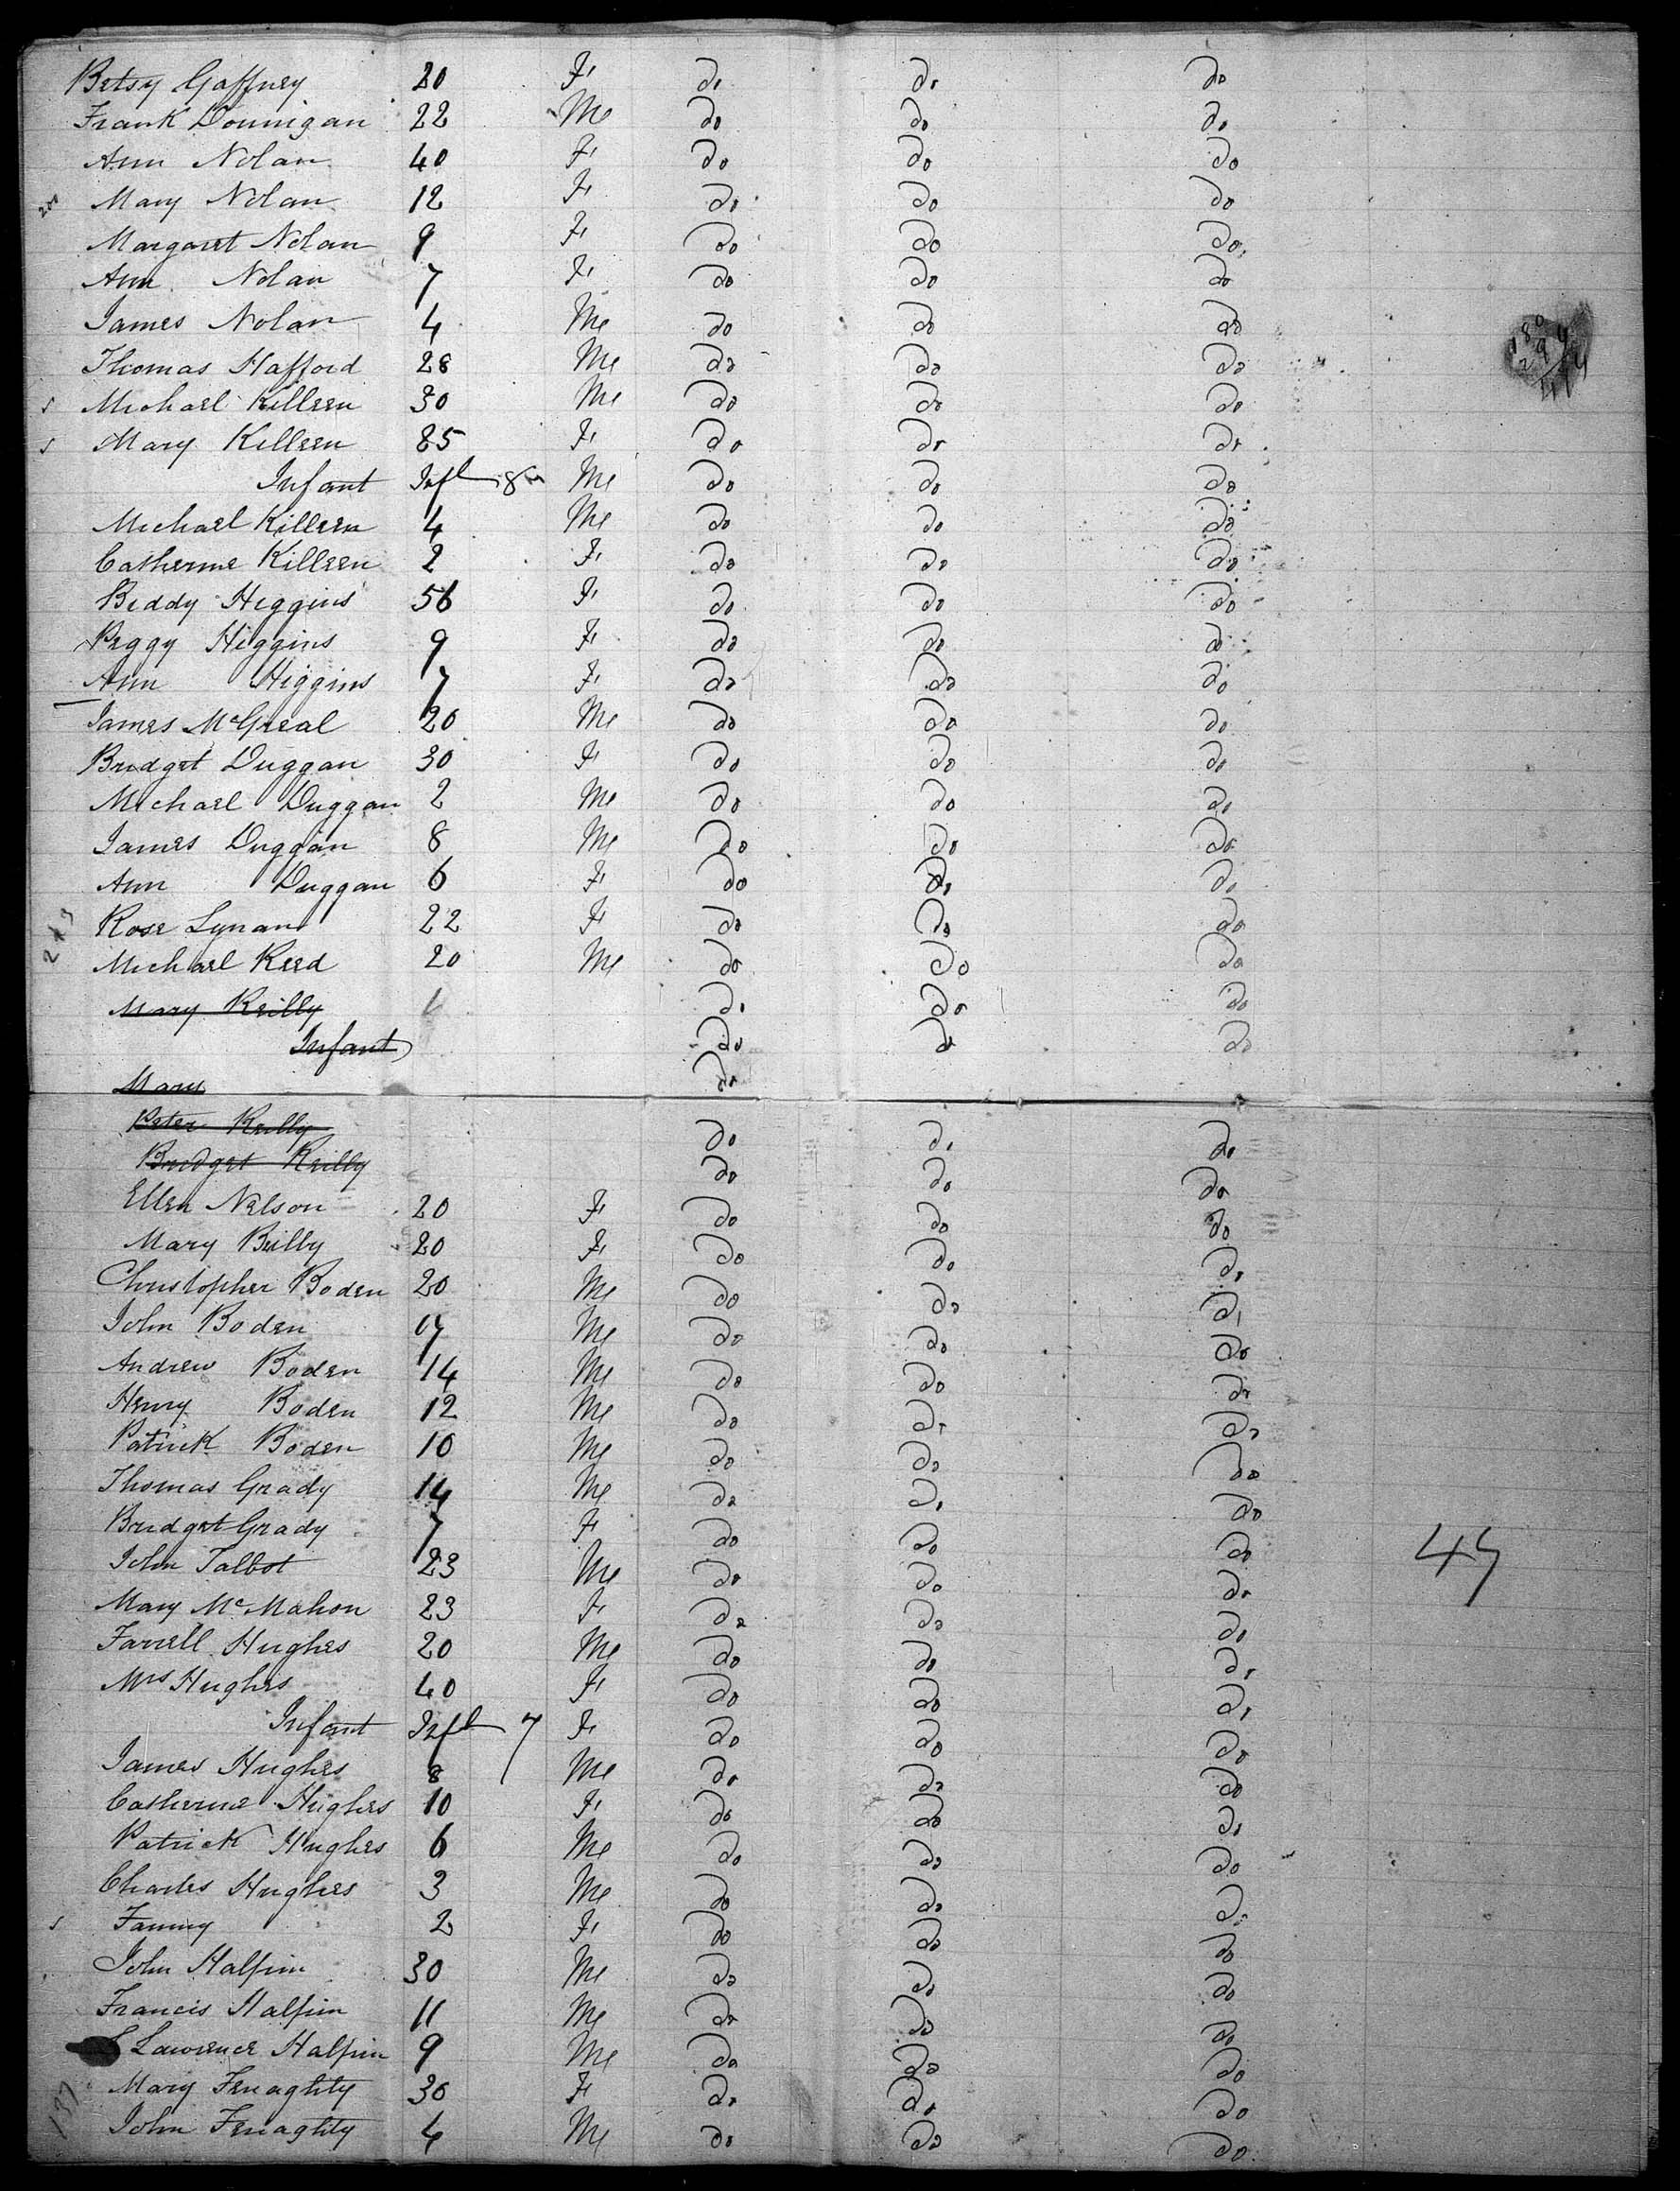 Betsy Gaffney 20 F do do do
Frank Dounigan 22 Me do do do
Ann Nolan 40 F do do do
Mary Nolan 12 F do do do
Margaret Nolan 9 F do do do
Ann Nolan 7 F do do do
James Nolan 4 Me do do do
Thomas Hafford 28 Me do do do
Michael Killeen 30 Me do do do
Mary Killeen 25 F do do do
Infant Inft 8 Me do do do
Michael Killeen 4 Me do do do
Catherine Killeen 2 F do do do
Biddy Higgins 56 F do do do
Peggy Higgins 9 F do do do
Ann Higgins 7 F do do do
James McGreal 20 Me do do do
Bridget Duggan 30 F do do do
Michael Duggan 2 Me do do do
James Duggan 8 Me do do do
Ann Duggan 6 F do do do
Rose Lynan 22 F do do do
Michael Reed 20 Me do do do
Mary Reilly do do do
Infant do do do
Mary do
Peter Reilly do do do
Bridget Reilly do do do
Ellen Nelson 20 F do do do
Mary Beilly 20 F do do do
Christopher Boden 20 Me do do do
John Boden 17 Me do do do
Andrew Boden 14 Me do do do
Henry Boden 12 Me do do do
Patrick Boden 10 Me do do do
Thomas Grady 14 Me do do do
Bridget Grady 7 F do do do
John Talbot 23 Me do do do
47
Mary McMahon 23 F do do do
Farrell Hughes 20 Me do do do
Mrs Hughes 40 F do do do
Infant Inft 7 F do do do
James Hughes 8 Me do do do
Catherine Hughes 10 F do do do
Patrick Hughes 6 Me do do do
Charles Hughes 3 Me do do do
Fanny 2 F do do do
John Halpin 30 Me do do do
Francis Halpin 11 Me do do do
Lawrence Halpin 9 Me do do do
Mary Fenaghty 30 F do do do
John Fenaghty 4 Me do do do